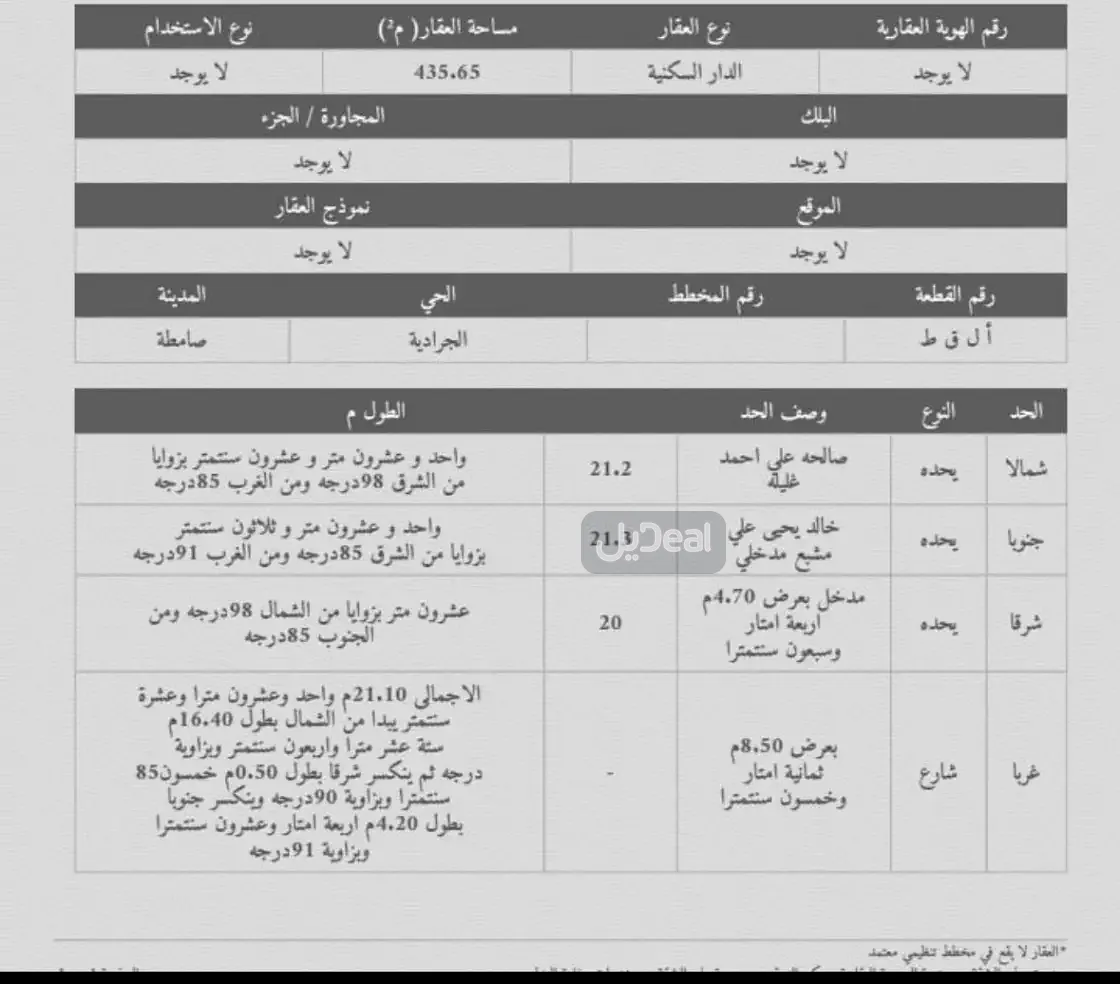 رقم الهوية العقارية نوع العقار مساحة العقار( م²) نوع الاستخدام
لا يوجد الدار السكنية 435.65 لا يوجد
البلك المجاورة / الجزء
لا يوجد لا يوجد
الموقع نموذج العقار
لا يوجد لا يوجد
رقم القطعة رقم المخطط الحي المدينة
أ ل ق ط الجرادية صامطة
الحد النوع وصف الحد الطول م
شمالا يحده صالحه علي احمد غليله 21.2 واحد و عشرون متر و عشرون سنتمتر بزوايا
من الشرق 98درجه ومن الغرب 85درجه
جنوبا يحده خالد يحيى علي مشيع مدخلي 21.3 واحد و عشرون متر و ثلاثون سنتمتر
بزوايا من الشرق 85درجه ومن الغرب 91درجه
ديل Deal
شرقا يحده مدخل بعرض 4.70م
اربعة امتار
وسبعون سنتمترا
20
عشرون متر بزوايا من الشمال 98درجه ومن
الجنوب 85درجه
غربا شارع بعرض 8.50م
ثمانية امتار
وخمسون سنتمترا
-
الاجمالى 21.10م واحد وعشرون مترا وعشرة
سنتمتر يبدا من الشمال بطول 16.40م
ستة عشر مترا واربعون سنتمتر وبزاوية
85درجه ثم ينكسر شرقا بطول 0.50م خمسون
سنتمترا وبزاوية 90درجه وينكسر جنوبا
بطول 4.20م اربعة امتار وعشرون سنتمترا
وبزاوية 91درجه
*العقار لا يقع في مخطط تنظيمي معتمد